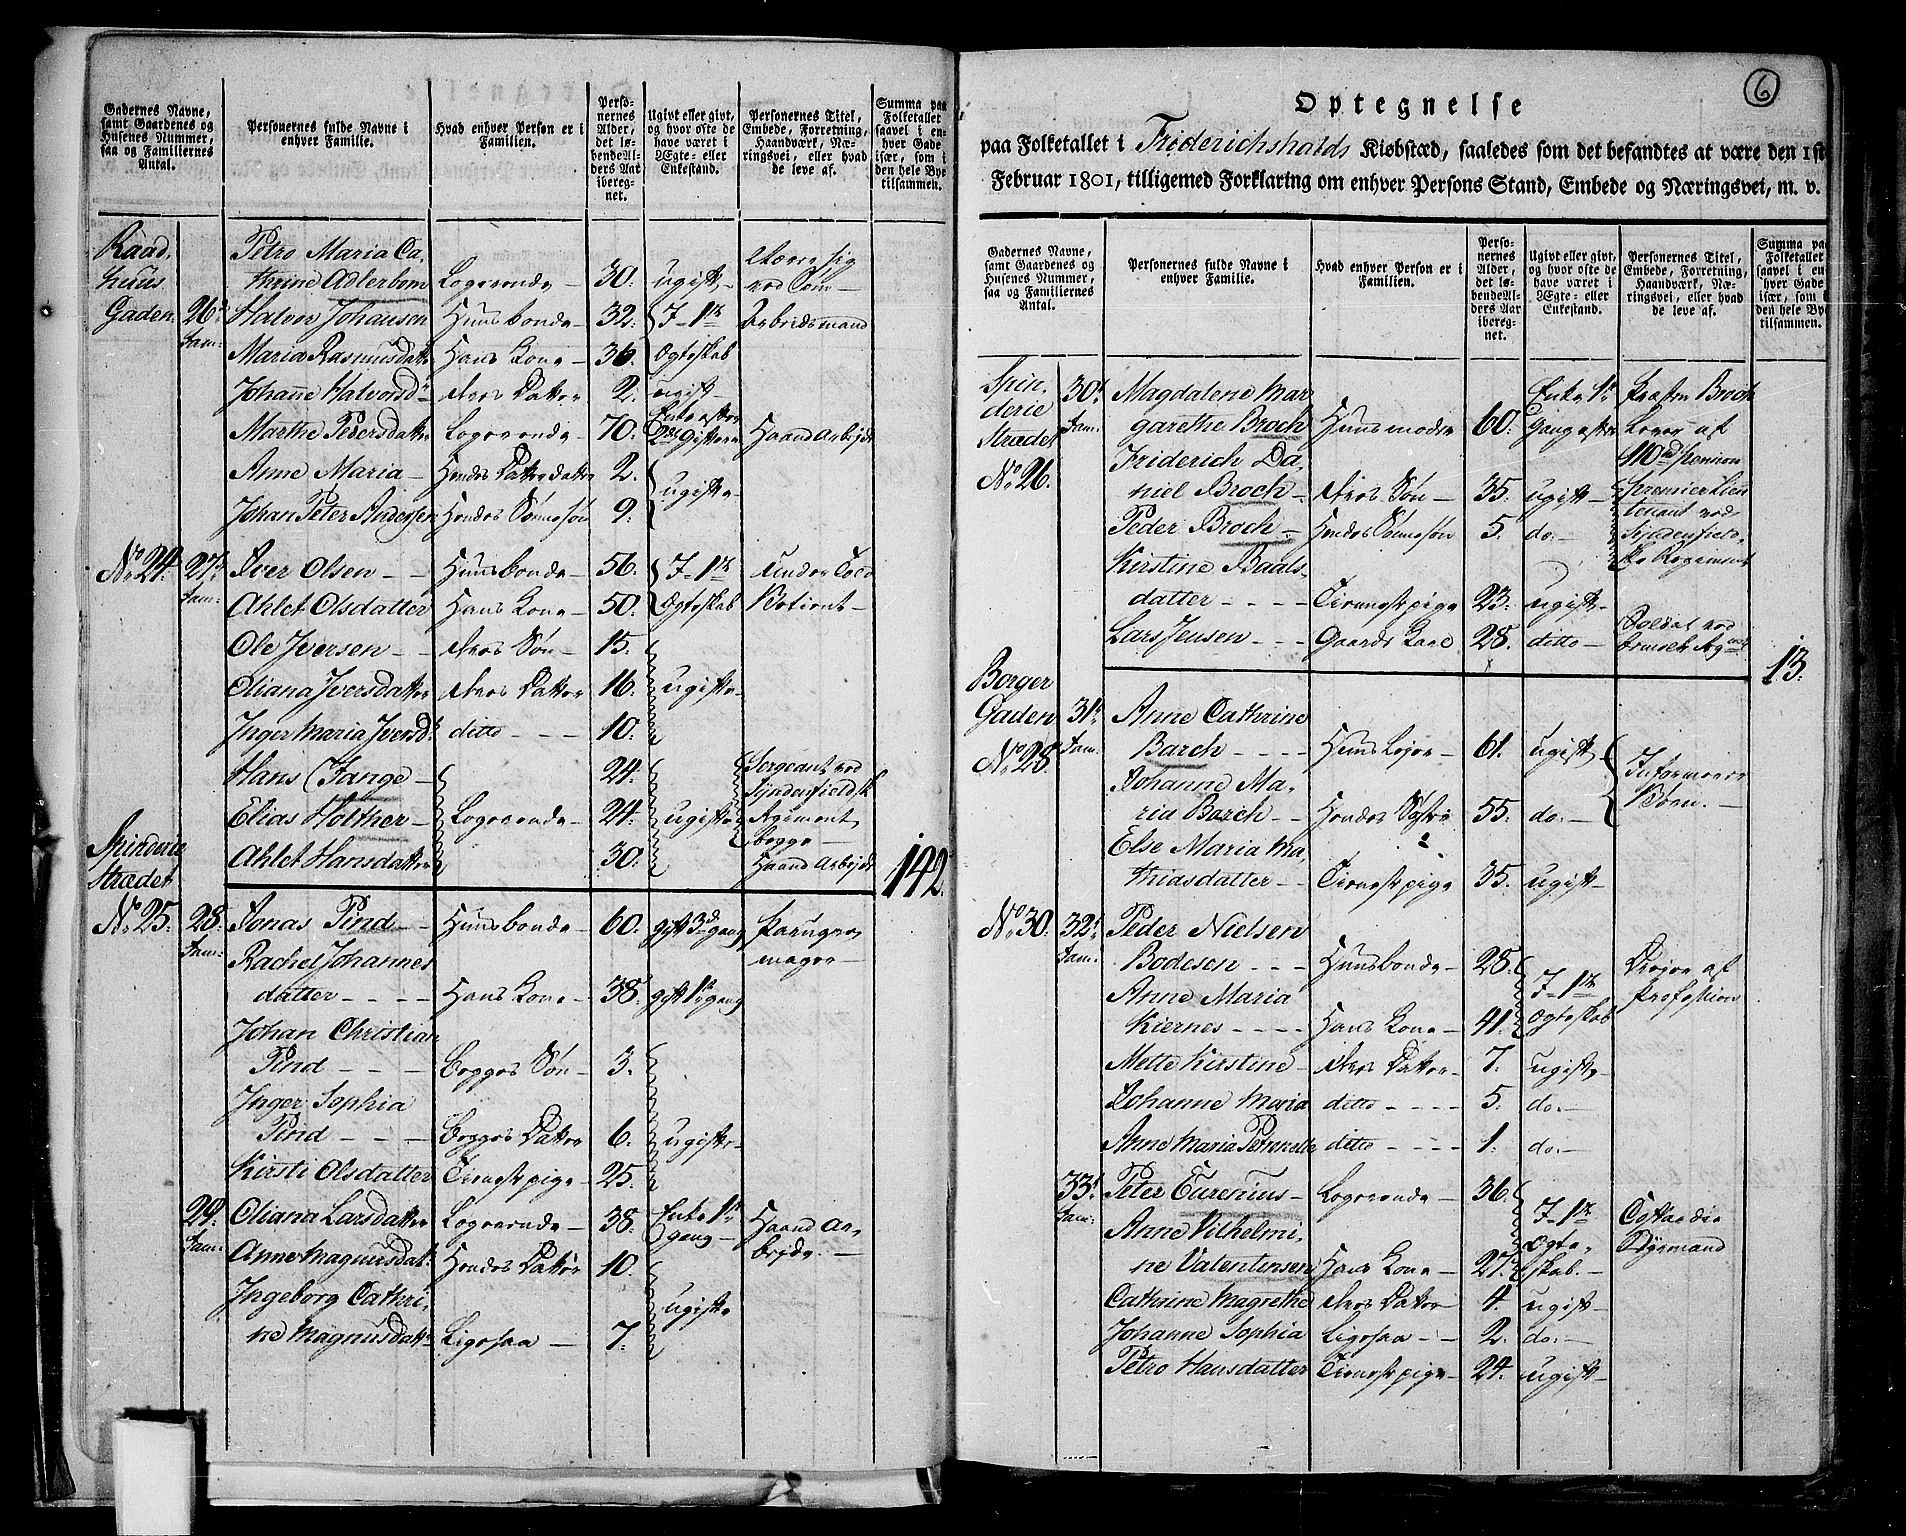 Gadernes Navne, samt Gaardenes og Husenes Nummer, saa og Familiernes Antal.
Personernes fulde Navne i enhver Familie.
Hvad enhver Person er i Familien.
Personernes Alder, det løbende Alders Aar iberegnet.
Ugivt eller givt, og hvor ofte de have været i Ægte- eller Enkestand.
Personernes Titel, Embede, Forretning, Haandværk, Næringsvei, eller hvad de leve af.
Summa paa Folketallet saavel i enhver Gade især, som i den hele Bye tilsammen.
Raad,
huus
Gaden
Petro Maria Ca,
thrine Adlerbom Logerende 30. ugift
26de Fam: Halvor Johansen Huusbonde 32. I 1te Arbeidsmand
Maria Rasmusdatter Hans Kone 36. Egteskab
Johanne Halvorsd. deres Datter 2. ugift
Marthe Pedersdatter Logerende 70. Haand Arbejde
Anne Maria Hendes Datterdatter 2. ugifte
Johan Peter Andersen Hendes Sønnesøn 9.
No. 24. 27de Fam: Iver Olsen Huusbonde 56. I 1te
Ahlet Olsdatter Hans Kone 50. Egteskab
Ole Iversen deres Søn 15.
Oliana Iversdatter deres Datter 16. ugifte
Inger Maria Iversd. ditto 10.
Hans Tange 24. Sergeant ved
Elias Holther Logerende 24. ugifte
begge
Ahlet Hansdatter 30. Haand Arbejde
142.
Spinderie
Strædet
No. 25. 28. Fam: Jonas Pind Huusbonde 60. gift 3d gang Paruqve
mager
Rachel Johannes
datter Hans Kone 38. gift 1te gang
Johan Christian
Pind Begges Søn 3.
Inger Sophia
Pind Begges Datter 6. ugifte
Kirsti Olsdatter Tienestpige 25.
29. Fam: Oliana Larsdatter Logerende 38. Enke 1te gang Haand Arbejde
Anne Magnusdat. Hendes Datter 10.
Ingeborg Cathri,
ne Magnusdatr Ligesaa 7. ugifte
6
Optegnelse
paa Folketallet i Friderichshalds Kiøbstæd, saaledes som det befandtes at være den 1ste
Februar 1801, tilligemed Forklaring om enhver Persons Stand, Embede og Næringsvei, m. v.
Gadernes Navne, samt Gaardenes og Husenes Nummer, saa og Familiernes Antal.
Personernes fulde Navne i enhver Familie.
Hvad enhver Person er i Familien.
Personernes Alder, det løbende Alders Aar iberegnet.
Ugivt eller givt, og hvor ofte de have været i Ægte- eller Enkestand.
Personernes Titel, Embede, Forretning, Haandværk, Næringsvei, eller hvad de leve af.
Summa paa Folketallet saavel i enhver Gade især, som i den hele Bye tilsammen.
Spin,
derie
Strædet
No. 26.
30te Fam: Magdalene Mar
garethe Broch Huusmoder 60. Enke 1te Gang Lever af
Pension
Friderich Da,
niel Broch deres Søn 35. ugift Premier Lieu
tenant ved
Peder Broch Hendes Sønnesøn 5. do.
Kirstine Baals,
datter Tienestpige 23. ugift
Lars Jensen Gaards Karl 28. ditto Soldat ved
13.
Borger
Gaden
No. 28.
31te Fam: Anne Cathrine
Barch Huus Lejer 61. ugift Informerer
Børn.
Johanne Ma,
ria Barch Hendes Søster 55. do.
Else Maria Ma,
thiasdatter Tienestpige 35. ugift
No. 30. 32te Fam: Peder Nielsen
Bodesen Huusbonde 28. I 1te Drejer af
Profession
Anne Maria
Kiernes Hans Kone 41. Egteskab
Mette Kirstine deres Datter 7. ugift
Johanne Maria ditto 5. do.
Anne Maria Petronelle ditto 1. do.
33te Fam: Peter Turenius Logerende 36. I 1te
Anne Vilhelmi,
ne Valentinsen Hans Kone 27. Egteskab.
Cathrine Magrethe deres Datter 4. ugift
Johanne Sophia Ligesaa 2. do.
Petro Hansdatter Tienestpige 24. ugift